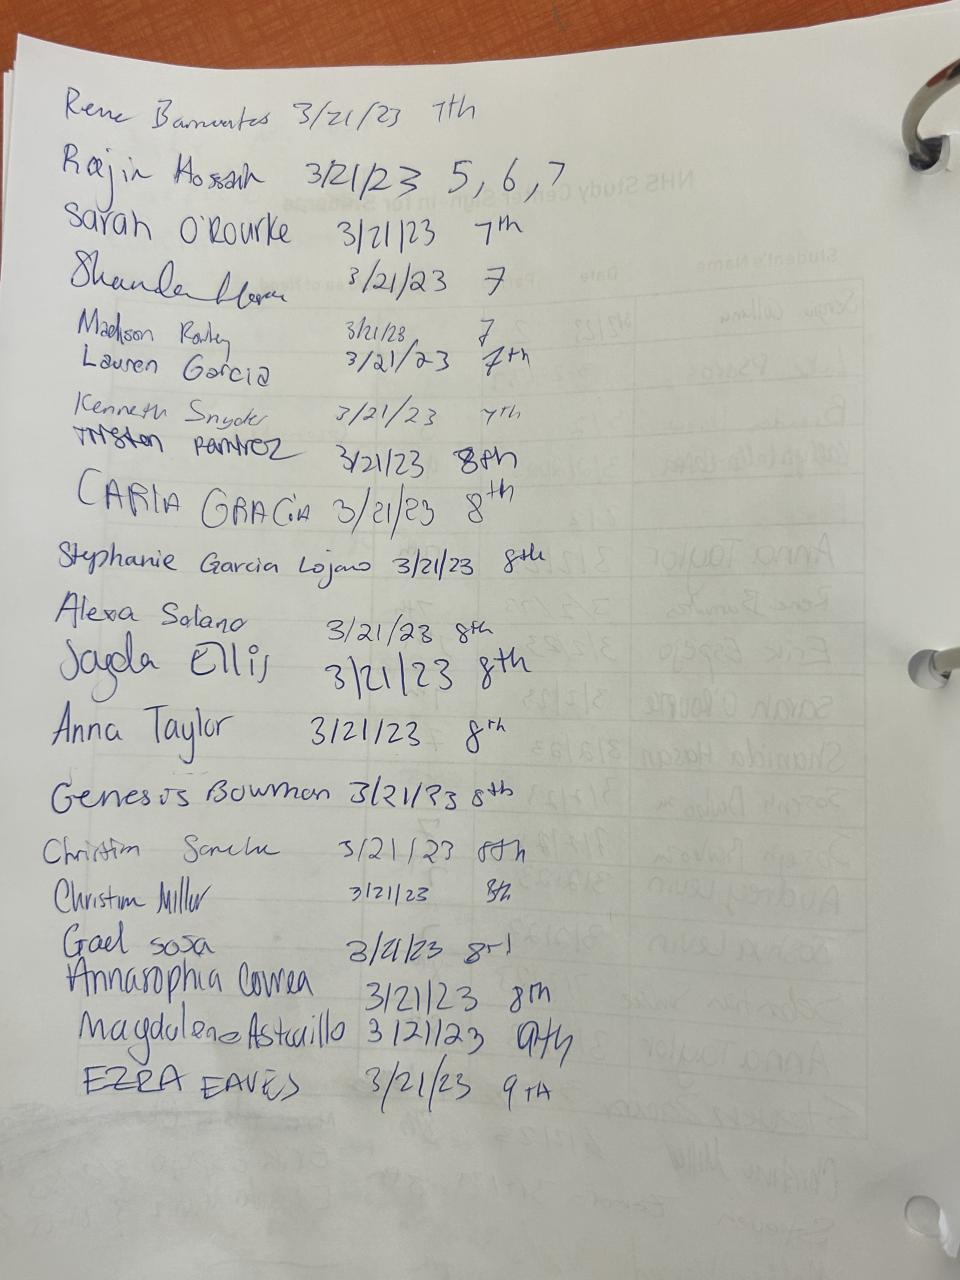 Rene 3/21/23 7th
Rajin Hossain 3/21/23 5, 6, 7
Sarah O'Rourke 3/21/23 7th
3/21/23 7
Madison 3/21/23 7
Lauren Garcia 3/21/23 7th
Kenneth Snyder 3/21/23 7th
Tristen Ramirez 3/21/23 8th
CARIA GRACIA 3/21/23 8th
Stephanie Garcia Lojano 3/21/23 8th
Alexa Solano 3/21/23 8th
Jayda Ellis 3/21/23 8th
Anna Taylor 3/21/23 8th
Genesis Bowman 3/21/23 8th
Christian 3/21/23 8th
Miller 3/21/23 8th
Gael sosa 3/21/23
Annasophia Correa 3/21/23 8th
3/21/23 9th
EZRA EAVES 3/21/23 9TH